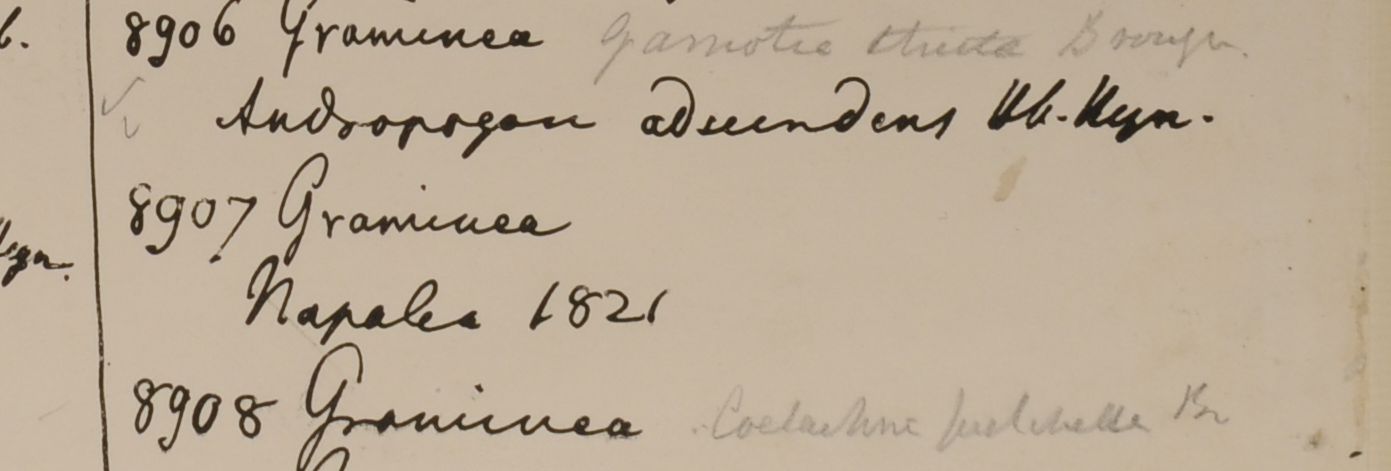 b.
8906 Graminea Garnotia stricta Brongn.
Andropogon adscendens Hb. Heyn.
8907 Graminea
Heyn.
Napalia 1821
8908 Graminea Coelachne pulchella Br